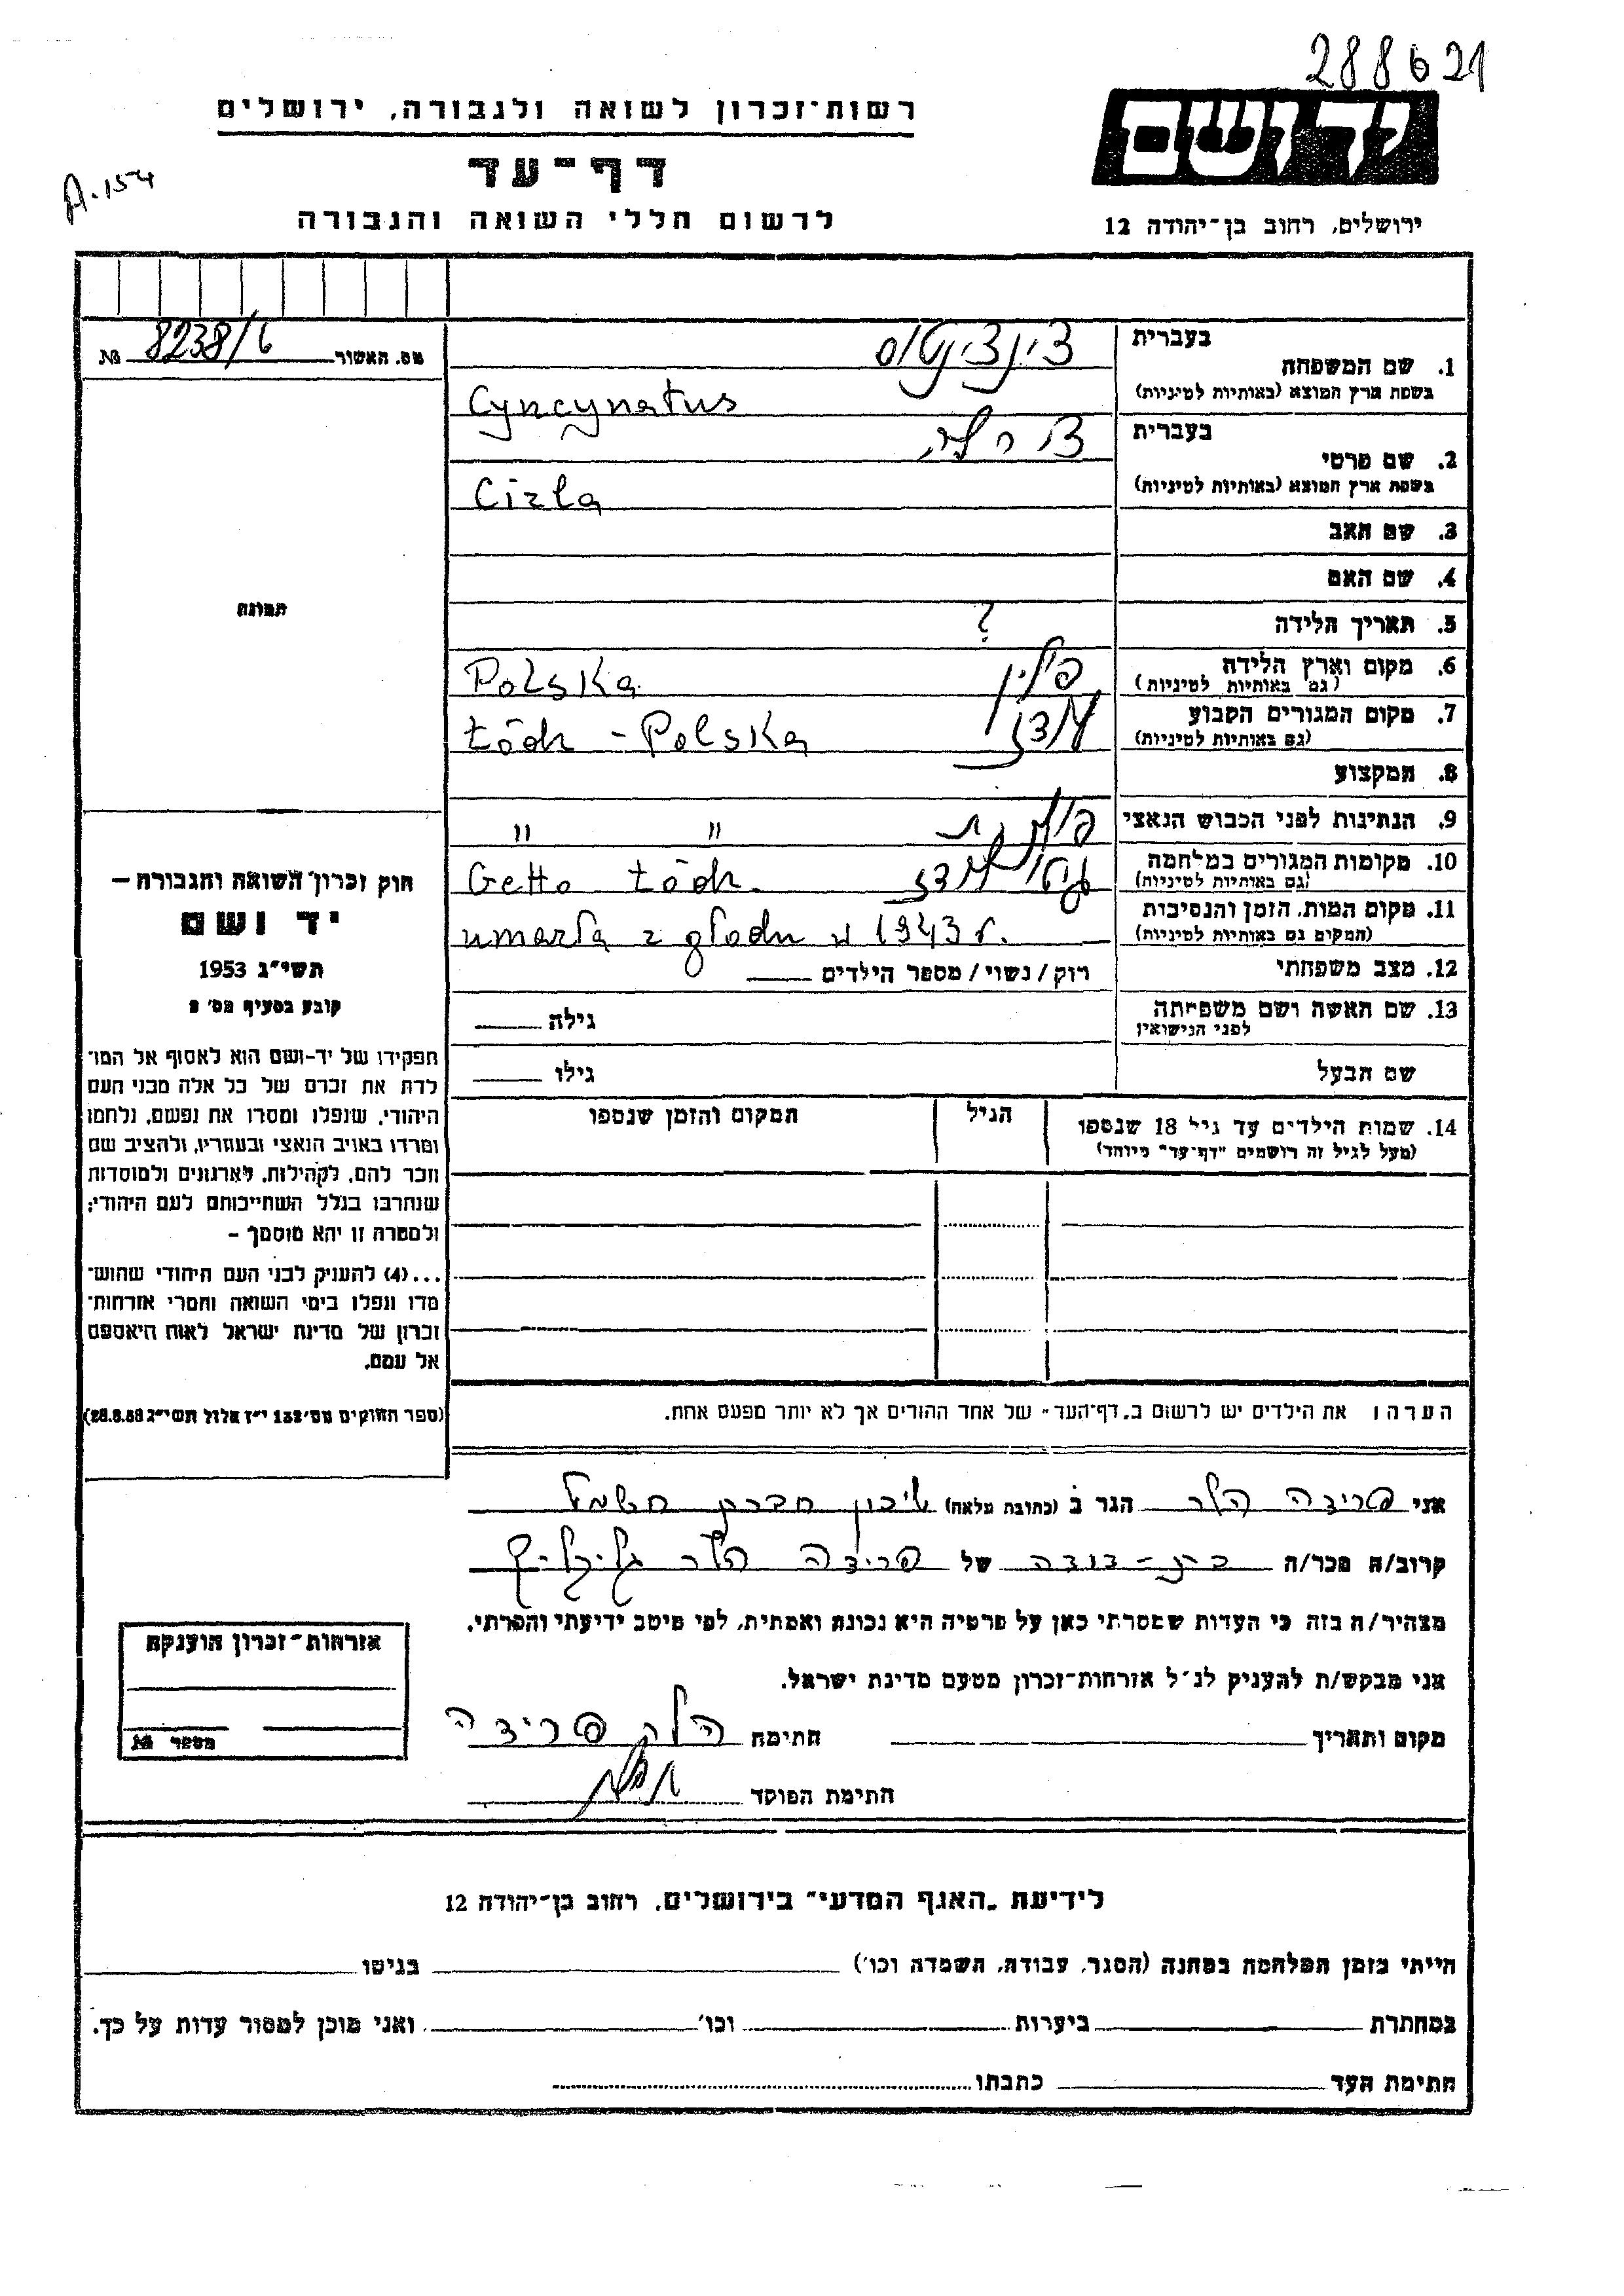 288621
רשות־זכרון לשואה ולגבורה, ירושלים
יד ושם
דף־עד
A-154
לרשום חללי השואה והגבורה
ירושלים, רחוב בן־יהודה 12
מס. האשור 8238/6 №
1. שם המשפחה
בעברית צינצינטוס
בשפת ארץ המוצא (באותיות לטיניות) Cyncynatus
2. שם פרטי
בעברית
בשפת ארץ המוצא (באותיות לטיניות) Cirla
3. שם האב
4. שם האם
תמונה
5. תאריך הלידה ?
6. מקום וארץ הלידה פולין Polska
(גם באותיות לטיניות)
7. מקום המגורים הקבוע לודז Łódz - Polska
(גם באותיות לטיניות)
8. המקצוע
9. הנתינות לפני הכבוש הנאצי פולנית " "
10. מקומות המגורים במלחמה גיטו לודז Getto Łódz.
(גם באותיות לטיניות)
11. מקום המות, הזמן והנסיבות umarła z głodu w 1943 r.
(המקום גם באותיות לטיניות)
12. מצב משפחתי רוק/נשוי/מספר הילדים
13. שם האשה ושם משפחתה גילה
לפני הנישואין
שם הבעל גילו
14. שמות הילדים עד גיל 18 שנספו הגיל המקום והזמן שנספו
(מעל לגיל זה רושמים "דף־עד" מיוחד)
חוק זכרון השואה והגבורה —
יד ושם
תשי"ג 1953
קובע בסעיף מס' 2
תפקידו של יד-ושם הוא לאסוף אל המו־
לדת את זכרם של כל אלה מבני העם
היהודי, שנפלו ומסרו את נפשם, נלחמו
ומרדו באויב הנאצי ובעוזריו, ולהציב שם
וזכר להם, לקהילות, לארגונים ולמוסדות
שנחרבו בגלל השתייכותם לעם היהודי;
ולמטרה זו יהא מוסמך –
...(4) להעניק לבני העם היהודי שהוש־
מדו ונפלו בימי השואה והמרי אזרחות־
זכרון של מדינת ישראל לאות היאספם
אל עמם.
(ספר החוקים מס' 132 י"ז אלול תשי"ג 28.8.53)
הערה: את הילדים יש לרשום ב„דף־העד" של אחד ההורים אך לא יותר מפעם אחת.
אני פרידה הלר הגר ב (כתובת מלאה) שיכון חברת חשמל
קרוב/ה מכר/ה בת-דודה של פרידה הלר
מצהיר/ה בזה כי העדות שמסרתי כאן על פרטיה היא נכונה ואמתית, לפי מיטב ידיעתי והכרתי.
אני מבקש/ת להעניק לנ"ל אזרחות־זכרון מטעם מדינת ישראל.
מקום ותאריך חתימה הלר פרידה
חתימת הפוקד
אזרחות־זכרון הוענקה
מספר №
לידיעת „האגף המדעי" בירושלים, רחוב בן־יהודה 12
הייתי בזמן המלחמה במחנה (הסגר, עבודה, השמדה וכו') בגיטו
במחתרת ביערות וכו' ואני מוכן למסור עדות על כך.
חתימת העד כתבתו